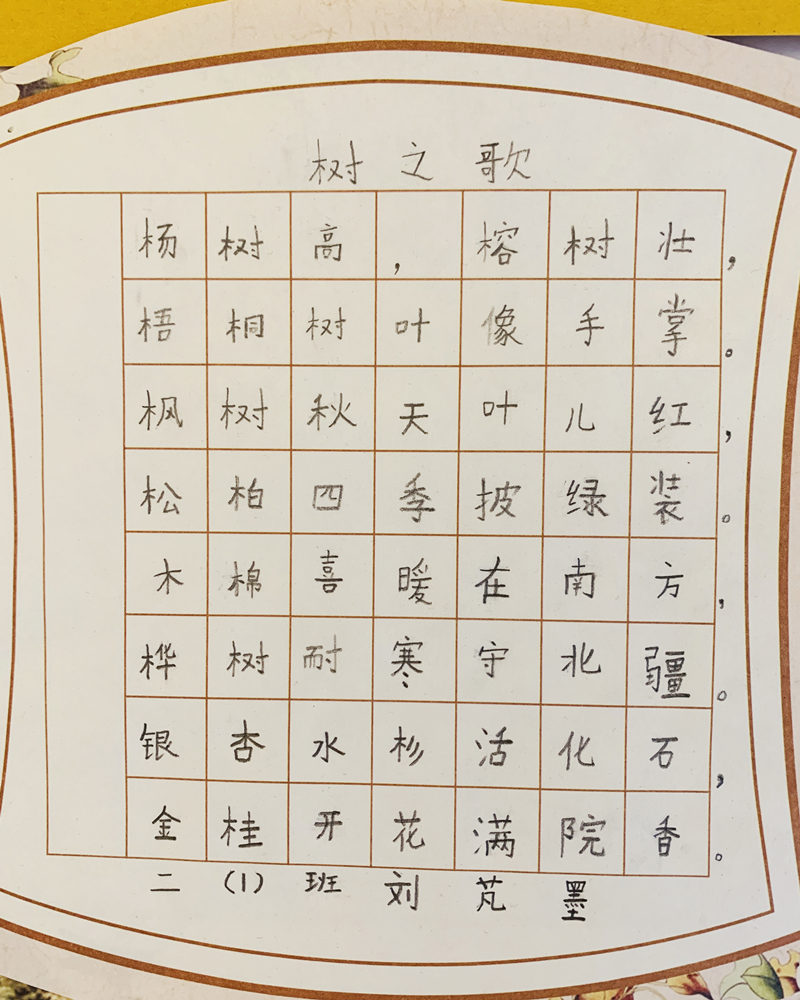 树之歌
杨树高，榕树壮，
梧桐树叶像手掌。
枫树秋天叶儿红，
松柏四季披绿装。
木棉喜暖在南方，
桦树耐寒守北疆。
银杏水杉活化石，
金桂开花满院香。
二（1）班刘芃墨